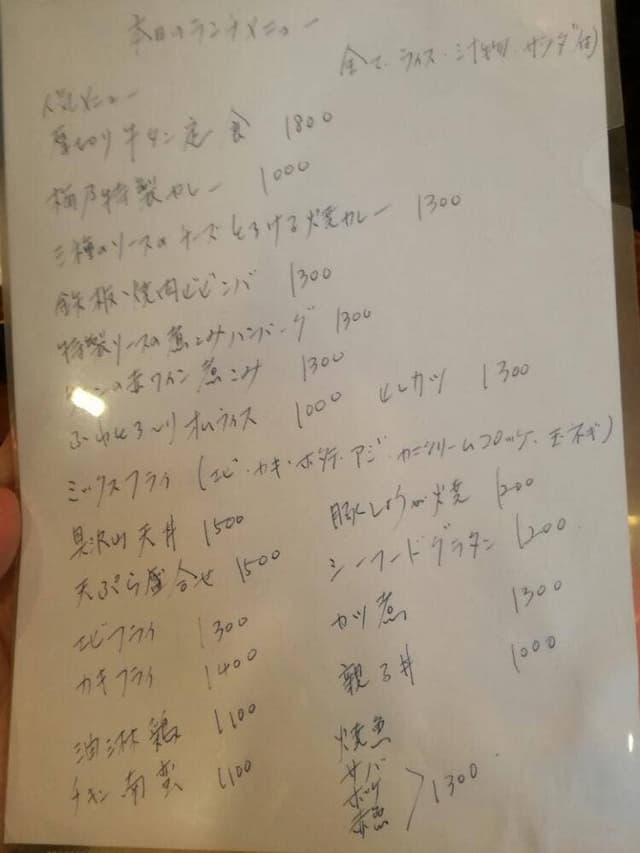 本日のランチメニュー
全て、ライス・ミソ汁・サラダ付)
人気メニュー
厚切り牛タン定食 1800
特製カレー 1000
三種のソースのチーズとろける焼カレー 1300
鉄板焼肉ビビンバ 1300
特製ソースの煮こみハンバーグ 1300
タンの赤ワイン煮こみ 1300
ふわとろ〜りオムライス 1000 ヒレカツ 1300
ミックスフライ (エビ・カキ・ホタテ・アジ・カニクリームコロッケ・玉ネギ)
具沢山天丼 1500 豚しょうが焼 1200
天ぷら盛合せ 1500 シーフードグラタン 1200
エビフライ 1300 カツ煮 1300
カキフライ 1400 親子丼 1000
油淋鶏 1100 焼魚
チキン南蛮 1100 サバ
ホッケ 1300
赤魚